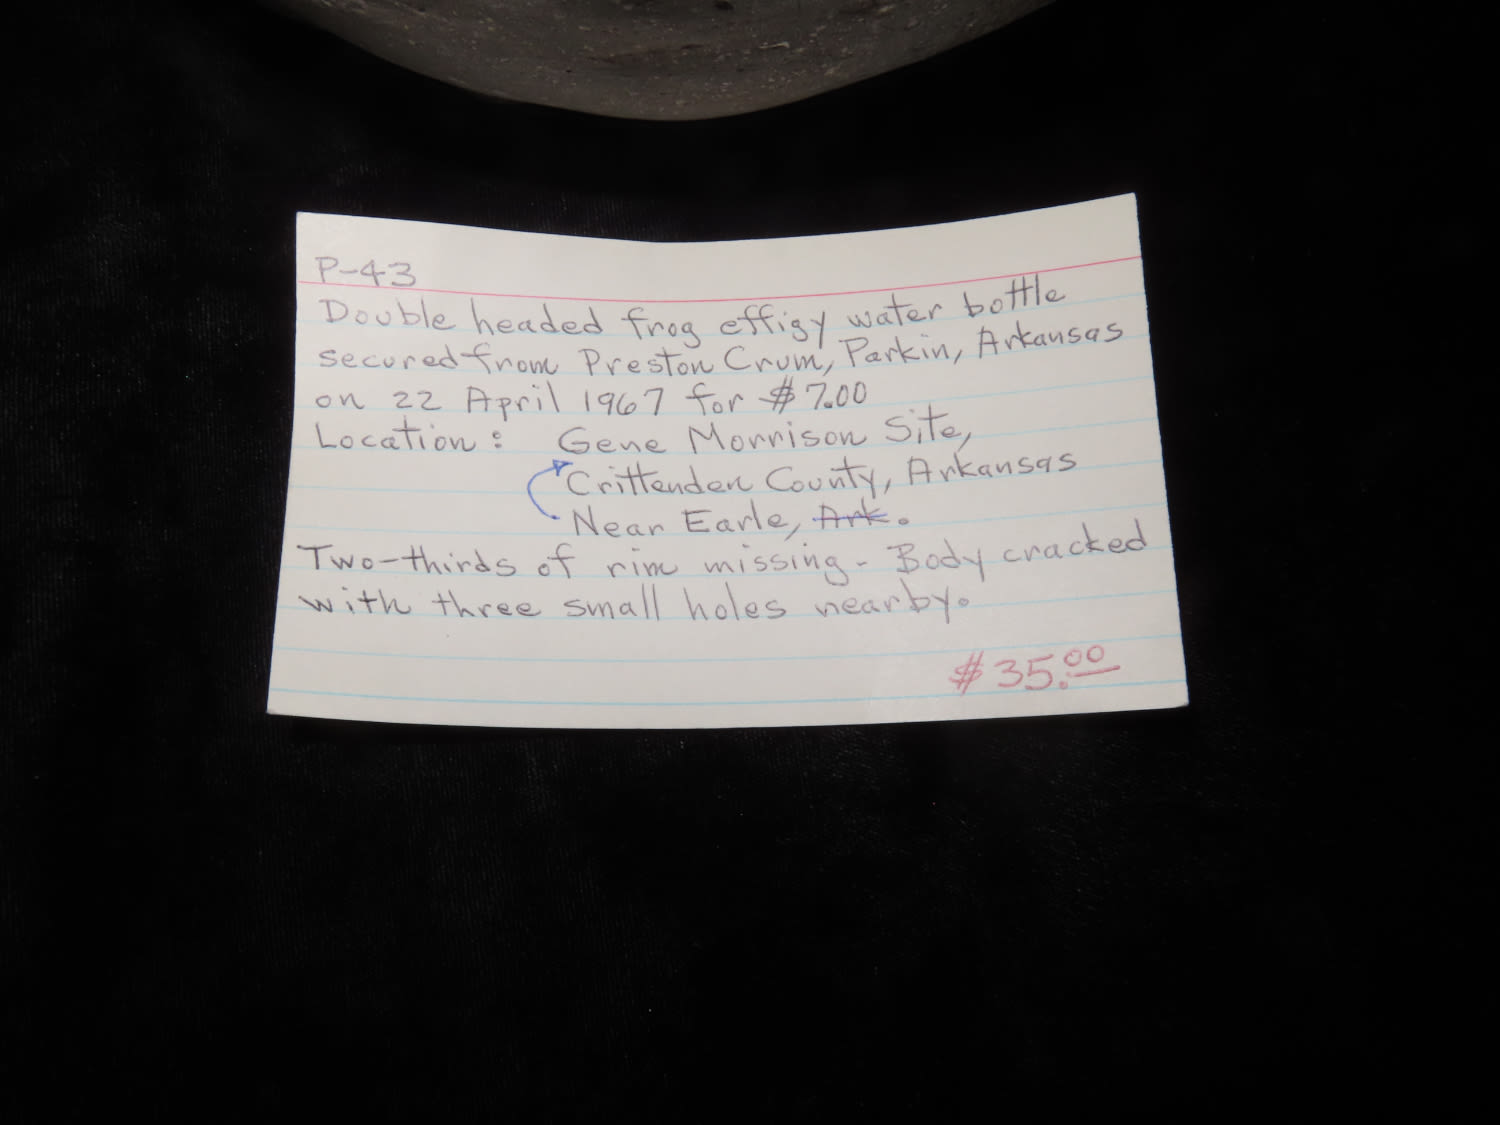 P-43
Double headed frog effigy water bottle
secured from Preston Crum, Parkin, Arkansas
on 22 April 1967 for $7.00
Location: Gene Morrison Site,
Crittenden County, Arkansas
Near Earle, Ark.
Two-thirds of rim missing - Body cracked
with three small holes nearby.
$35.00